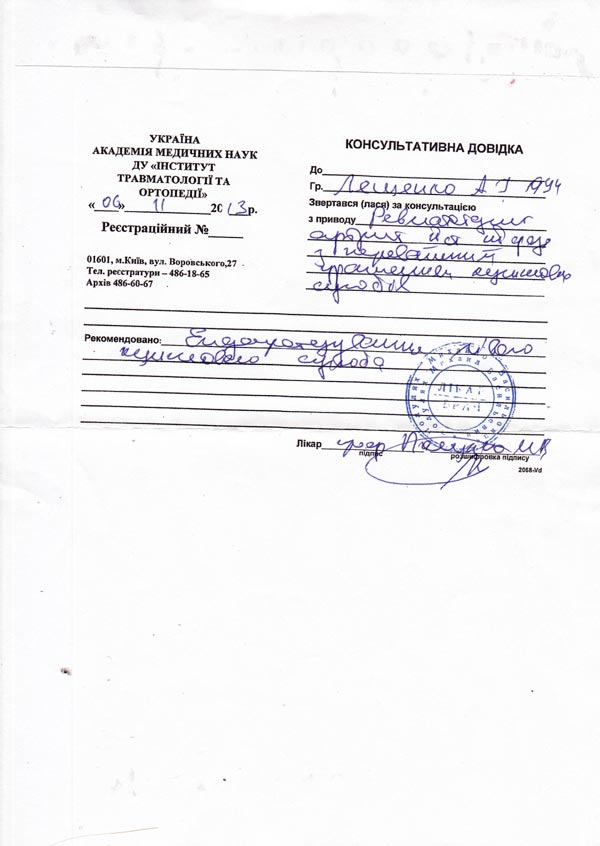 УКРАЇНА
АКАДЕМІЯ МЕДИЧНИХ НАУК
ДУ «ІНСТИТУТ
ТРАВМАТОЛОГІЇ ТА
ОРТОПЕДІЇ»
«06» 11 2013р.
Реєстраційний №
01601, м.Київ, вул. Воровського,27
Тел. реєстратури – 486-18-65
Архів 486-60-67
КОНСУЛЬТАТИВНА ДОВІДКА
До
Гр. Лещенко А 1994
Звертався (лася) за консультацією
з приводу Ревматоїдний
артрит
з переважним
ураженням кульшових
суглобів
Рекомендовано: Ендопротезування лівого
кульшового суглоба
ЛІКАР
ВРАЧ
Лікар проф
підпис
розшифровка підпису
2068-Vd